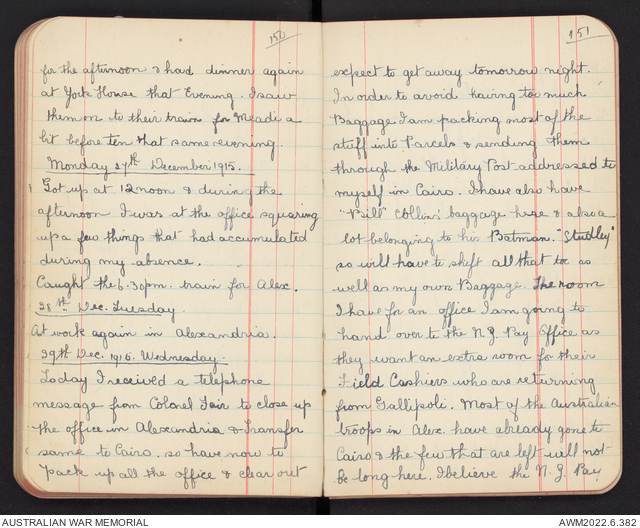 150
for the afternoon & had dinner again
at York House that Evening. I saw
them on to their train for Meadi a
bit before ten that same evening.
Monday 27th December 1915.
Got up at 12 noon & during the
afternoon I was at the office squaring
up a few things that had accumulated
during my absence.
Caught the 6.30pm. train for Alex.
28th Dec. Tuesday.
At work again in Alexandria.
29th Dec. 1915. Wednesday.
Today I received a telephone
message from Colonel Fair to close up
the office in Alexandria & transfer
same to Cairo. so have now to
pack up all the office & clear out
151
expect to get away tomorrow night.
In order to avoid having too much
Baggage I am packing most of the
stuff into Parcels & sending them
through the Military Post addressed to
myself in Cairo. I have also have
"Bill" Collin: baggage here & also a
lot belonging to his Batman. "Studley"
so will have to shift all that too as
well as my own Baggage. The room
I have for an office I am going to
hand over to the N.Z. Pay Office as
they want an extra room for their
Field Cashiers who are returning
from Gallipoli. Most of the Australian
troops in Alex. have already gone to
Cairo & the few that are left will not
be long here. I believe the N.Z. Pay
AUSTRALIAN WAR MEMORIAL
AWM2022.6.382